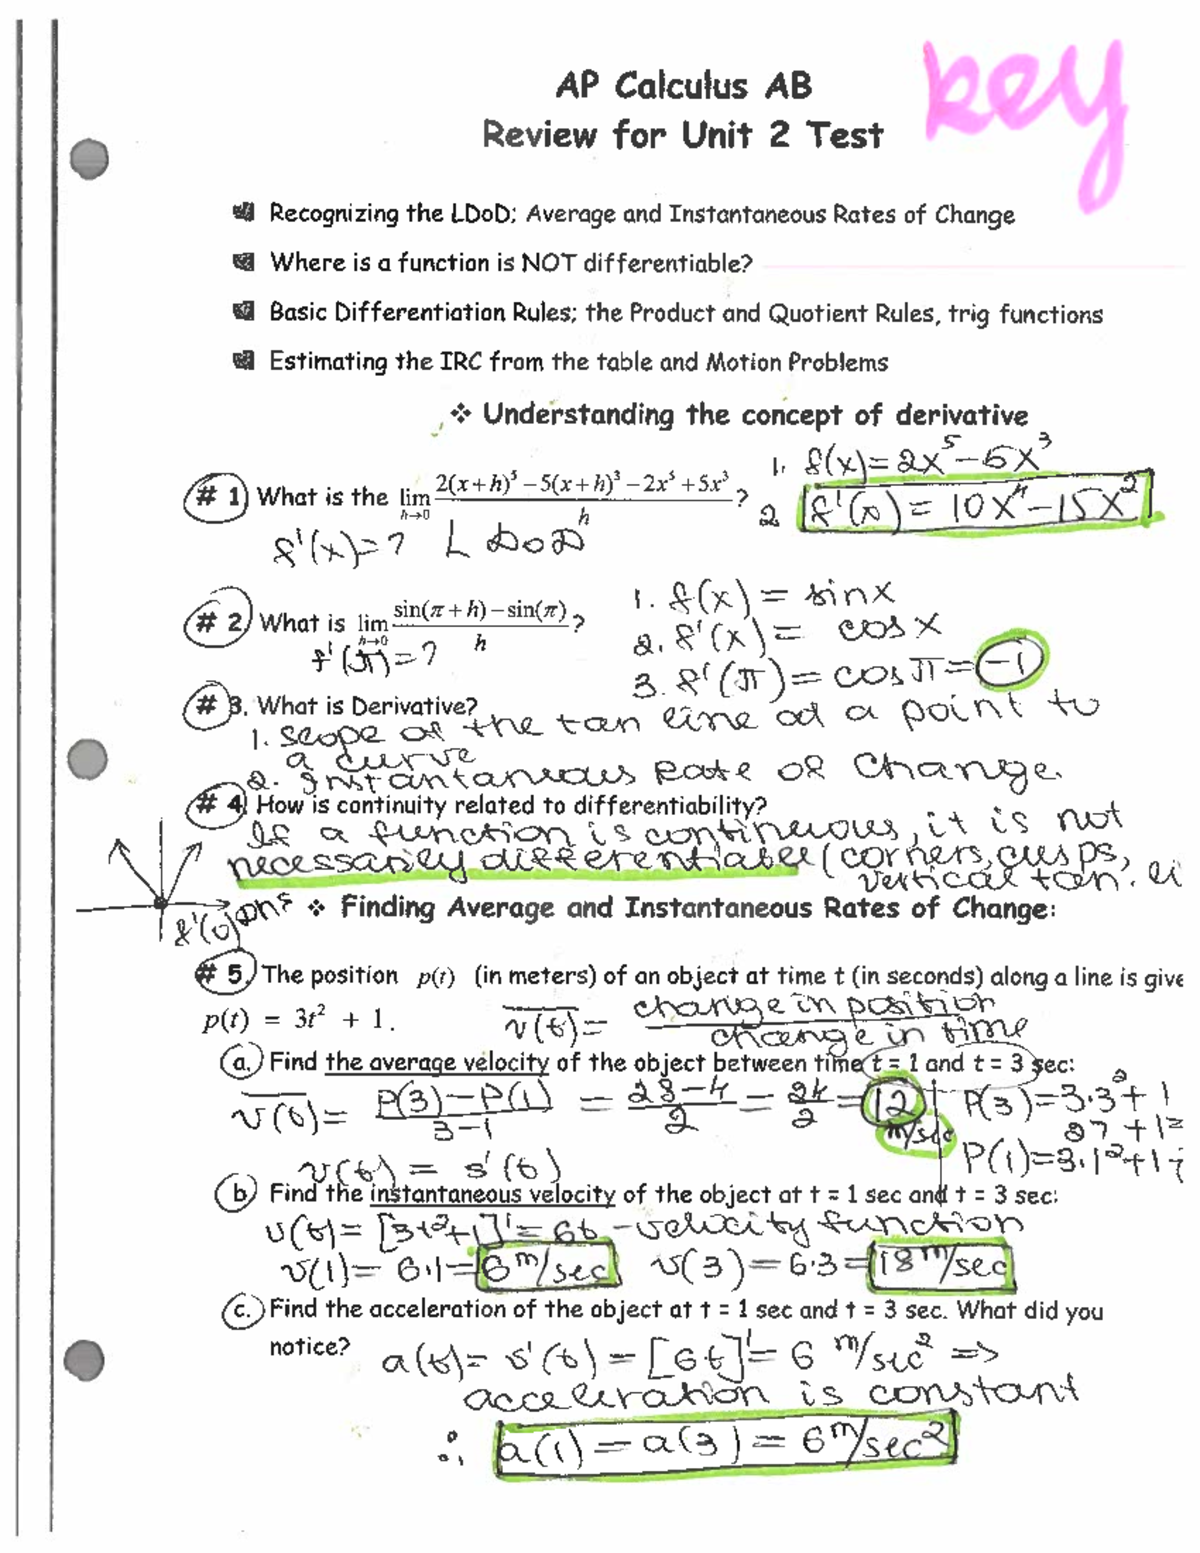 key
AP Calculus AB
Review for Unit 2 Test
Recognizing the LDoD; Average and Instantaneous Rates of Change
Where is a function is NOT differentiable?
Basic Differentiation Rules; the Product and Quotient Rules, trig functions
Estimating the IRC from the table and Motion Problems
❖ Understanding the concept of derivative
1. f(x) = 2x^5 - 5x^3
# 1 What is the lim h→0 (2(x+h)^5 - 5(x+h)^3 - 2x^5 + 5x^3)/h ?
2 f'(x) = 10x^4 - 15x^2
f'(x) = ? LDoD
1. f(x) = sin x
# 2. What is lim h→0 (sin(π+h) - sin(π))/h ?
2. f'(x) = cos x
f'(π) = ?
3. f'(π) = cos π = -1
# 3. What is Derivative?
1. slope of the tan line at a point to
a curve
2. Instantaneous Rate of Change.
# 4. How is continuity related to differentiability?
If a function is continuous, it is not
necessarily differentiable (corners, cusps,
vertical tan. li
f'(0) DNE
❖ Finding Average and Instantaneous Rates of Change:
# 5. The position p(t) (in meters) of an object at time t (in seconds) along a line is give
p(t) = 3t^2 + 1. v(t) = change in position / change in time
a. Find the average velocity of the object between time t = 1 and t = 3 sec:
v(t) = (P(3) - P(1))/(3 - 1) = (28 - 4)/2 = 24/2 = 12 m/sec
P(3) = 3·3^2 + 1
27 + 1=
P(1) = 3·1^2 + 1=
v(t) = s'(t)
b. Find the instantaneous velocity of the object at t = 1 sec and t = 3 sec:
v(t) = [3t^2+1]' = 6t - velocity function
v(1) = 6·1 = 6 m/sec v(3) = 6·3 = 18 m/sec
c. Find the acceleration of the object at t = 1 sec and t = 3 sec. What did you
notice? a(t) = v'(t) = [6t]' = 6 m/sec^2 =>
acceleration is constant
∴ a(1) = a(3) = 6 m/sec^2